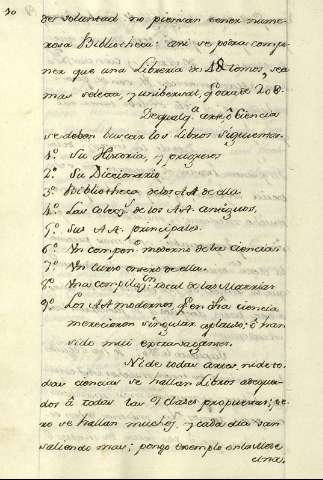 de voluntad no piensan tener nume-
rosa Bibliotheca: asi se podra compo-
ner que una Libreria de 4 8 tomos, sea
mas selecta, y universal, q.e otra de 20 8.
De qualq.a arte, ô Ciencia
se deben buscar los Libros siguientes.
1.o Su Historia, y progresos
2.o Su Diccionario
3.o Bibliotheca de los AA. de ella.
4.o Las Colecz.s de los AA. antiguos.
5.o Sus AA. principales.
6.o Un comp.o moderno de la Ciencia.
7.o Un curso entero de ella.
8.o Una Compilaz.n total de las Materias
9.o Los AA modernos, q.e en dha ciencia
merecieron singular aplauso; ô han
sido mui extravagantes.
Ni de todas artes, ni de to-
das ciencias se hallan Libros adequa-
dos â todas las 9 Clases propuestas; pe-
ro se hallan muchos, y cada dia van
saliendo mas; pongo exemplo en la Mede
cina.